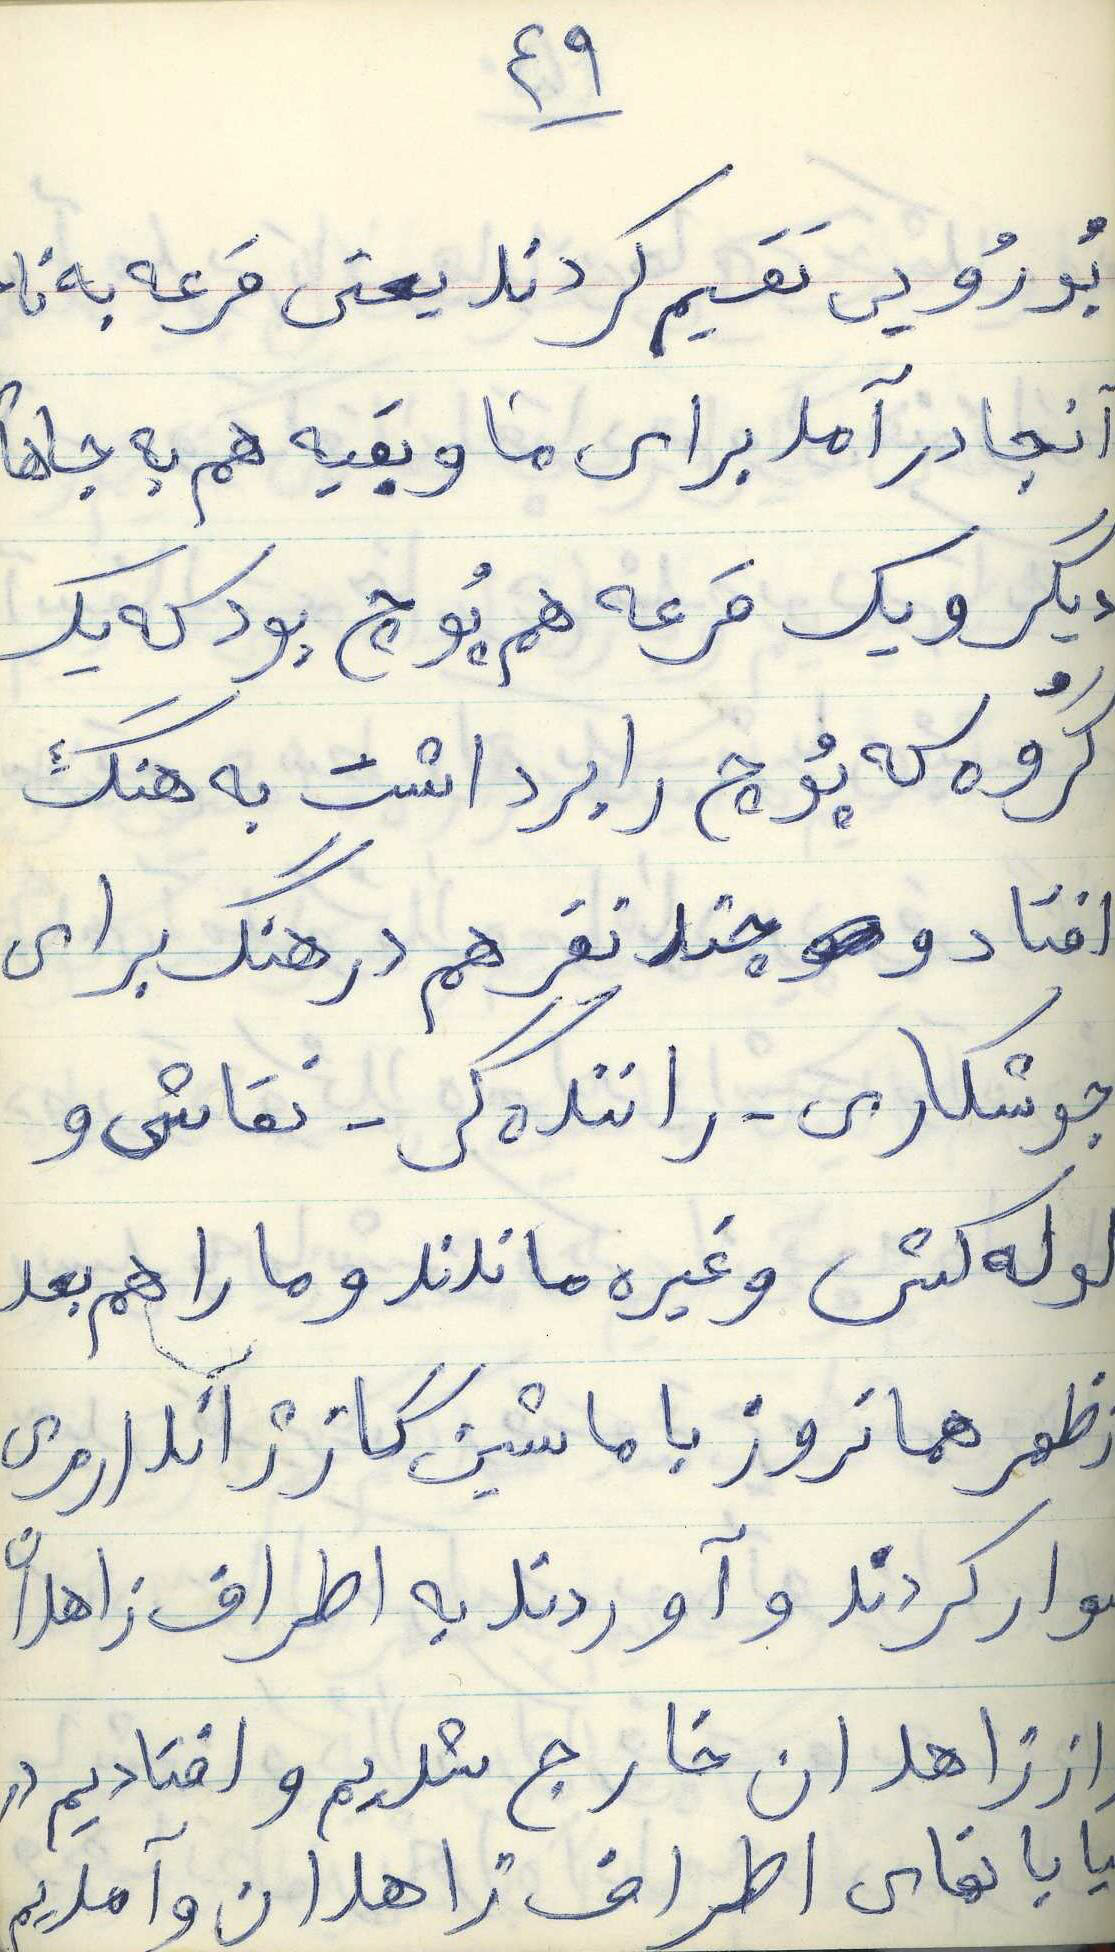 ۴۹
بُورُویی تقسیم کردند یعنی قرعه به نا
آنجا در آمد برای ما و بقیه هم به جاها
دیگر و یک قرعه هم پُوچ بود که یک
گُروه که پُوچ را برداشت به هنگ
افتاد و چند نفر هم در هنگ برای
جوشکاری - راننده گی - نقاشی و
لوله کش و غیره ماندند و ما را هم بعد
از ظهر همانروز با ماشین گاز ژآندارمری
سوار کردند و آوردند به اطراف زاهدان
از زاهدان خارج شدیم و افتادیم در
بیابانهای اطراف زاهدان و آمدیم